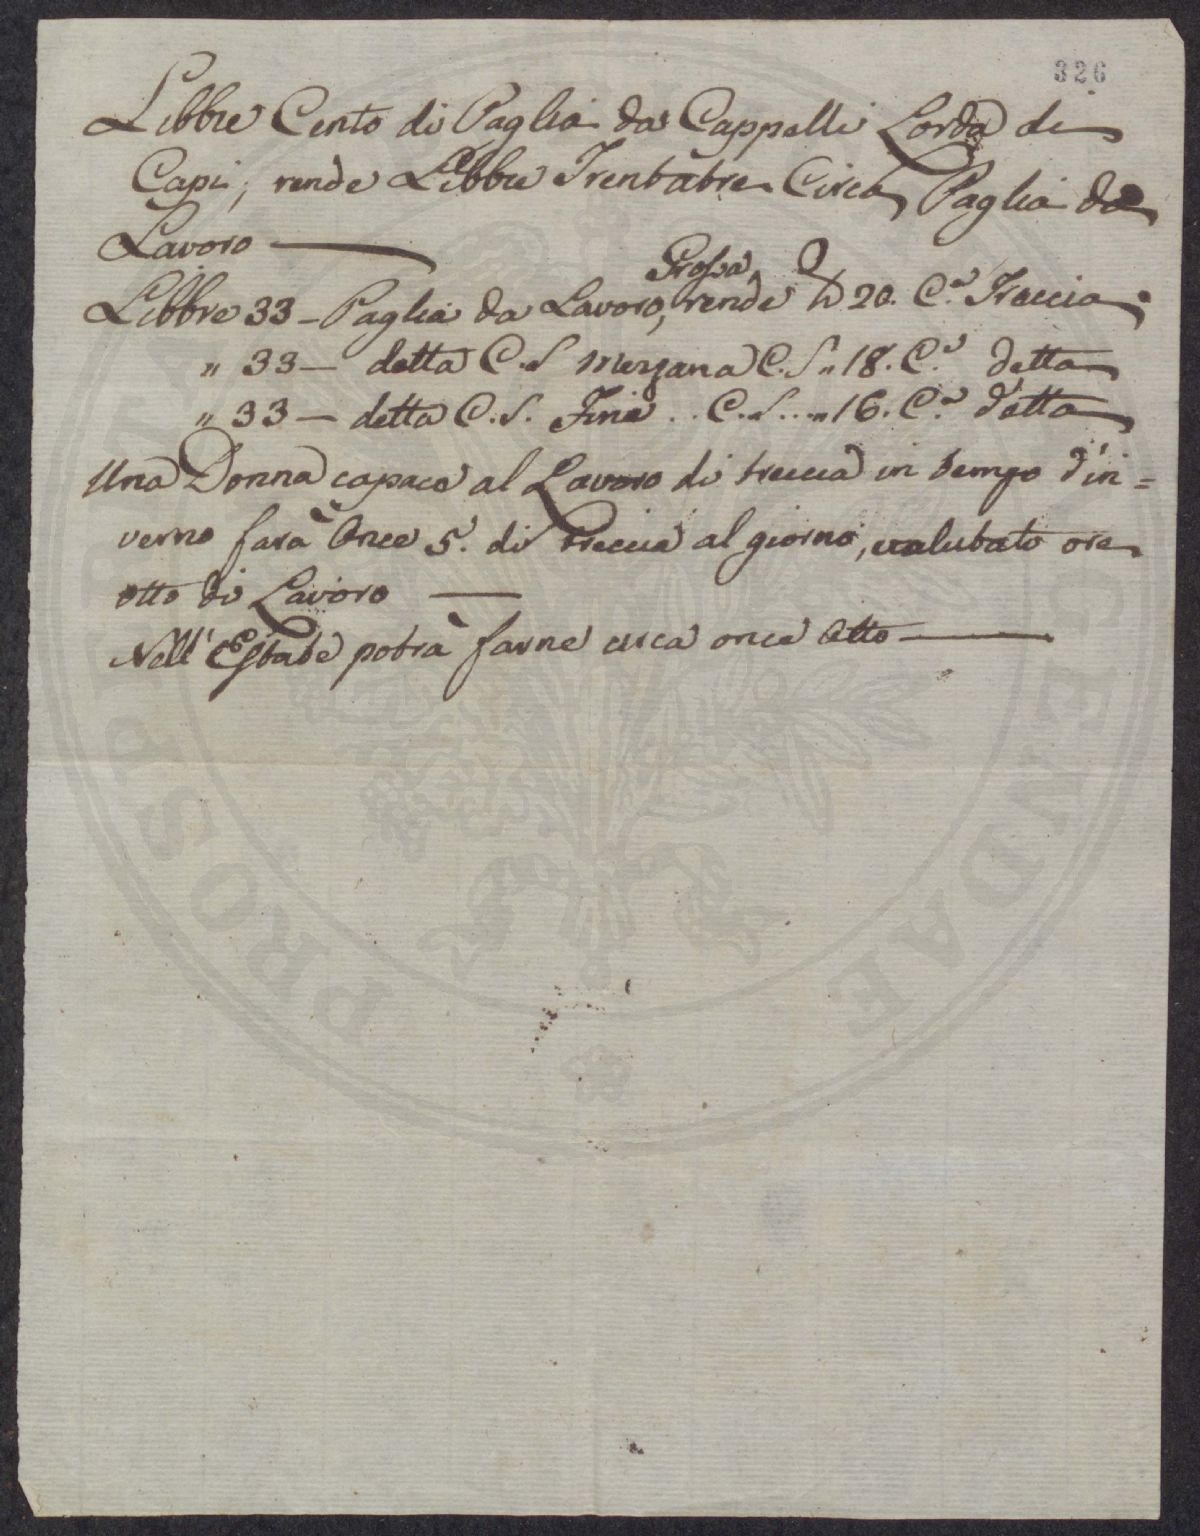 326
Libbre Cento di Paglia da Cappelli Lorda di
Capi, rende Libbre Trentatre Circa Paglia da
Lavoro —
Grossa
Libbre 33 - Paglia da Lavoro, rende lb 20. C.a Treccia
" 33 — detta C.S. Mezzana C.S. " 18. C.a detta
" 33 — detta C.S. Fine .. C.S. ... " 16. C.a detta
Una Donna capace al Lavoro di treccia in tempo d'in=
verno farà Once 5. di treccia al giorno, valutato ore
otto di Lavoro —
Nell'Estate potrà farne circa once Otto —
PROSPERITATI AUGENDAE